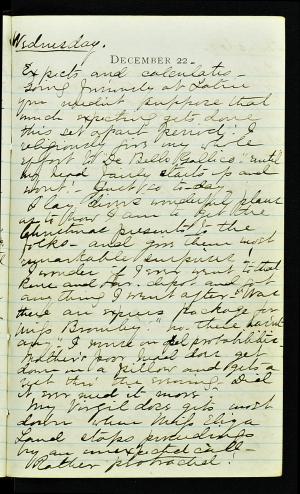 Wednesday.
DECEMBER 22.
Expects and calculates
going at Latin
you suppose that
much expecting gets done
this set apart period; I
religiously give my whole
effort to "De Bello Gallico" until
my head fairly starts up and
won't. Just so to-day.
I lay down wonderful plans
as to how I am to get the
Christmas presents to the
folks - and give them most
remarkable surprises!
I wonder if I ever went to that
and depot and got
anything I went after! "Was
there an express package for
Miss " "no. there
any." I on probabilities.
Mother's poor head does get
down in a pillow and gets a
rest this evening. Did
it ever need it more.
My Virgil does get most
down when Miss Eliza
Land stops proceedings
by an unexpected call -
Rather protracted!